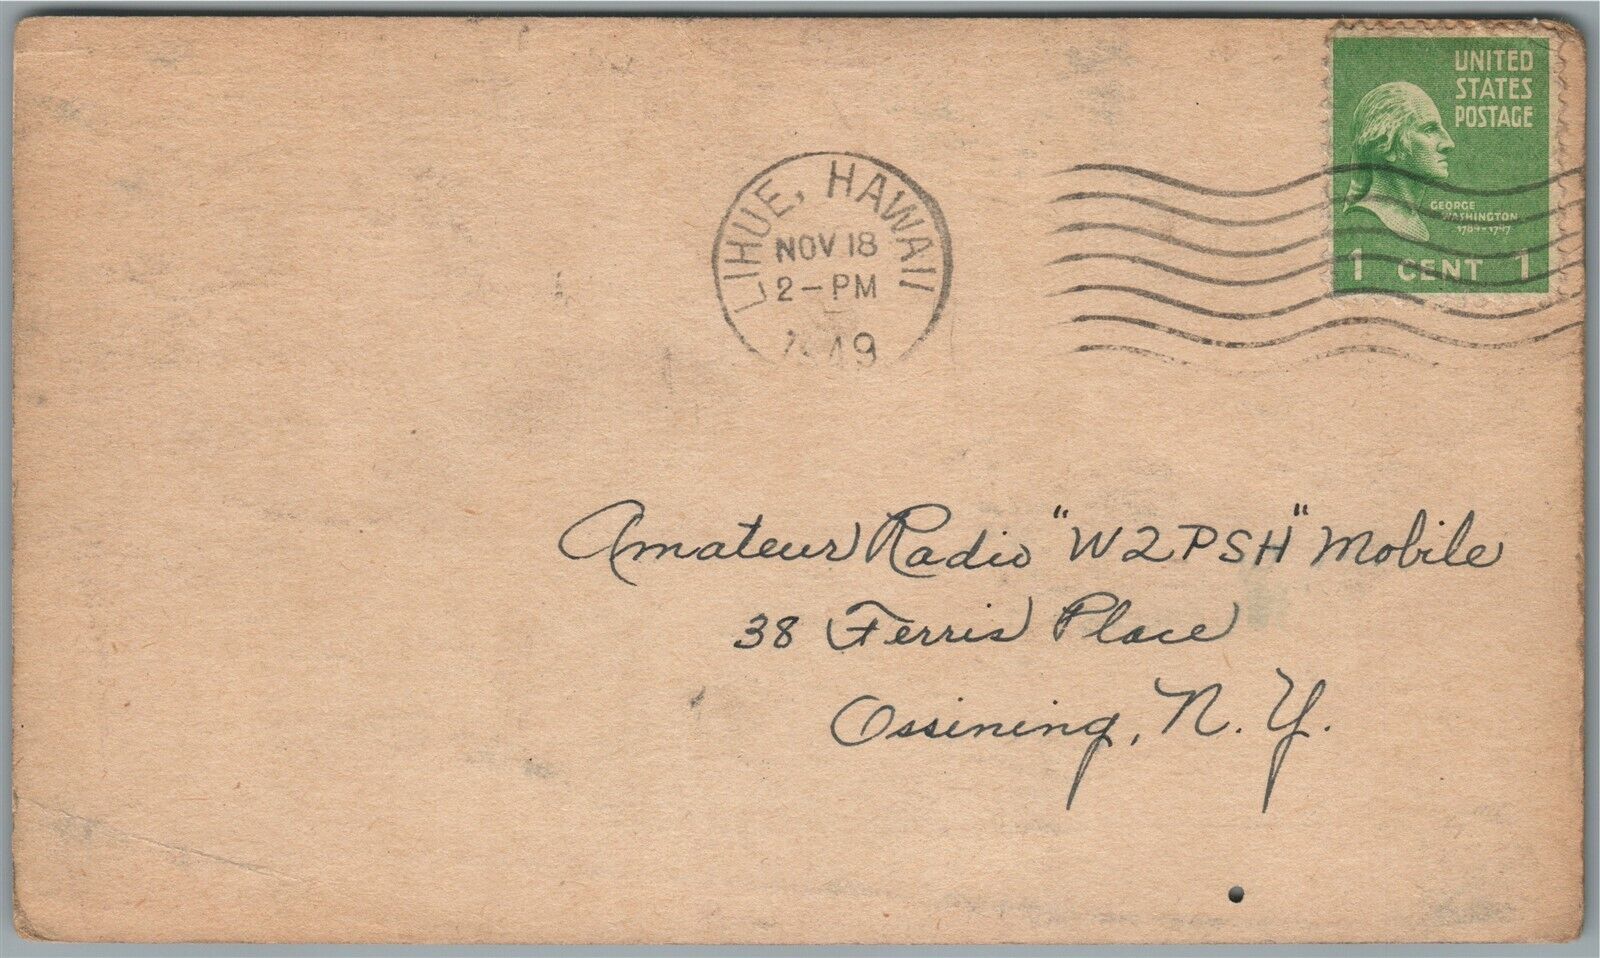 UNITED
STATES
POSTAGE
GEORGE
WASHINGTON
1789-1797
1 CENT 1
LIHUE, HAWAII
NOV 18
2-PM
1949
Amateur Radio "W2PSH" Mobile
38 Ferris Place
Ossining, N. Y.